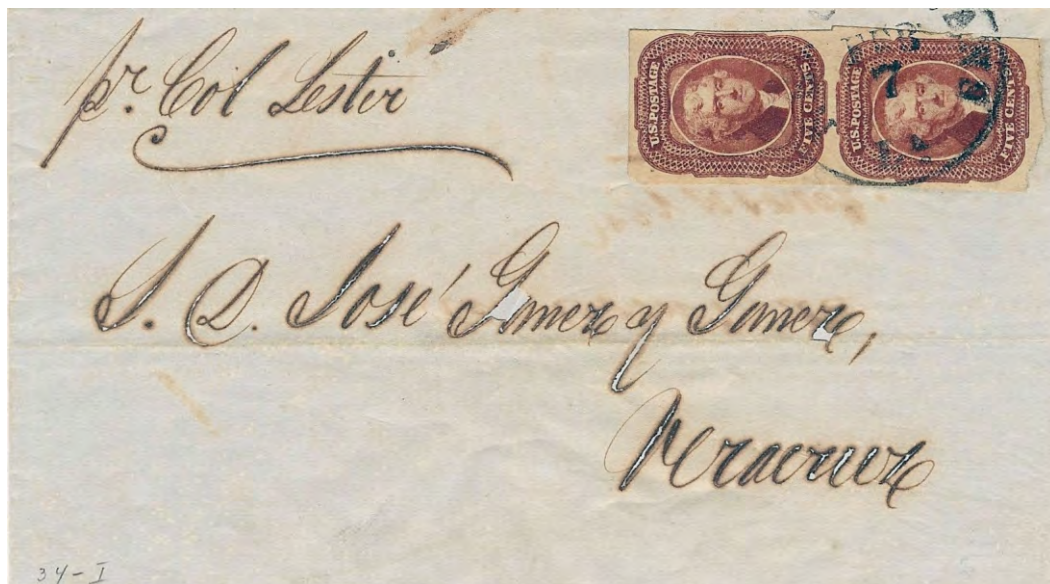 pr. Col Lester
U.S. POSTAGE FIVE CENTS
U.S. POSTAGE FIVE CENTS
7
S. D. José Gomez y Gomez,
Veracruz
34-I